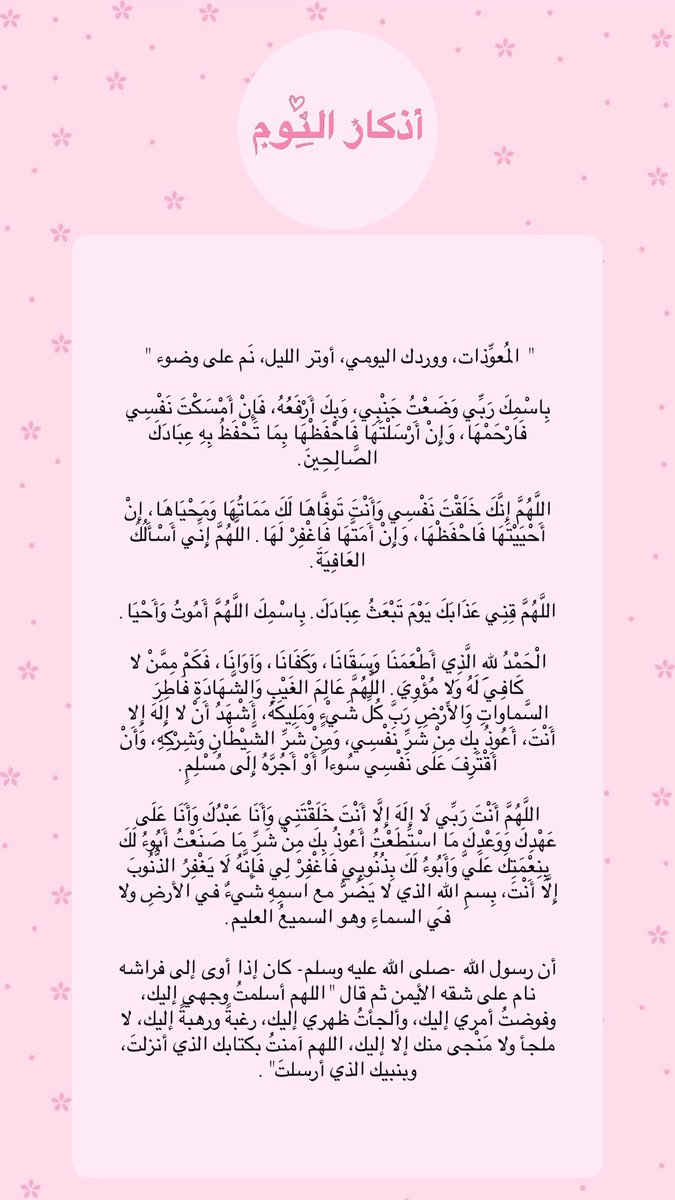 أذكار النَّوم
" المُعوِّذات، ووردك اليومي، أوتر الليل، نَم على وضوء "
بِاسْمِكَ رَبِّي وَضَعْتُ جَنْبِي، وَبِكَ أَرْفَعُهُ، فَإِنْ أَمْسَكْتَ نَفْسِي
فَارْحَمْهَا، وَإِنْ أَرْسَلْتَهَا فَاحْفَظْهَا بِمَا تَحْفَظُ بِهِ عِبَادَكَ
الصَّالِحِينَ.
اللَّهُمَّ إِنَّكَ خَلَقْتَ نَفْسِي وَأَنْتَ تَوفَّاهَا لَكَ مَمَاتُهَا وَمَحْيَاهَا، إِنْ
أَحْيَيْتَهَا فَاحْفَظْهَا، وَإِنْ أَمَتَّهَا فَاغْفِرْ لَهَا. اللَّهُمَّ إِنِّي أَسْأَلُكَ
العَافِيَةَ.
اللَّهُمَّ قِنِي عَذَابَكَ يَوْمَ تَبْعَثُ عِبَادَكَ. بِاسْمِكَ اللَّهُمَّ أَمُوتُ وَأَحْيَا.
الْحَمْدُ للهِ الَّذِي أَطْعَمَنَا وَسَقَانَا، وَكَفَانَا، وَآوَانَا، فَكَمْ مِمَّنْ لا
كَافِيَ لَهُ وَلا مُؤْوِيَ. اللَّهُمَّ عَالِمَ الغَيْبِ وَالشَّهَادَةِ فَاطِرَ
السَّماواتِ وَالأَرْضِ رَبَّ كُلِّ شَيْءٍ وَمَلِيكَهُ، أَشْهَدُ أَنْ لا إِلَهَ إِلا
أَنْتَ، أَعُوذُ بِكَ مِنْ شَرِّ نَفْسِي، وَمِنْ شَرِّ الشَّيْطَانِ وَشِرْكِهِ، وَأَنْ
أَقْتَرِفَ عَلَى نَفْسِي سُوءاً أَوْ أَجُرَّهُ إِلَى مُسْلِمٍ.
اللَّهُمَّ أَنْتَ رَبِّي لَا إِلَهَ إِلَّا أَنْتَ خَلَقْتَنِي وَأَنَا عَبْدُكَ وَأَنَا عَلَى
عَهْدِكَ وَوَعْدِكَ مَا اسْتَطَعْتُ أَعُوذُ بِكَ مِنْ شَرِّ مَا صَنَعْتُ أَبُوءُ لَكَ
بِنِعْمَتِكَ عَلَيَّ وَأَبُوءُ لَكَ بِذُنُوبِي فَاغْفِرْ لِي فَإِنَّهُ لَا يَغْفِرُ الذُّنُوبَ
إِلَّا أَنْتَ، بِسمِ الله الذي لا يَضُرُّ مع اسمِهِ شيءٌ في الأرضِ ولا
في السماءِ وهو السميعُ العليم.
أن رسول الله -صلى الله عليه وسلم- كان إذا أوى إلى فراشه
نام على شقه الأيمن ثم قال " اللهم أسلمتُ وجهي إليك،
وفوضتُ أمري إليك، وألجأتُ ظهري إليك، رغبةً ورهبةً إليك، لا
ملجأ ولا مَنْجى منك إلا إليك، اللهم آمنتُ بكتابك الذي أنزلتَ،
وبنبيك الذي أرسلتَ" .